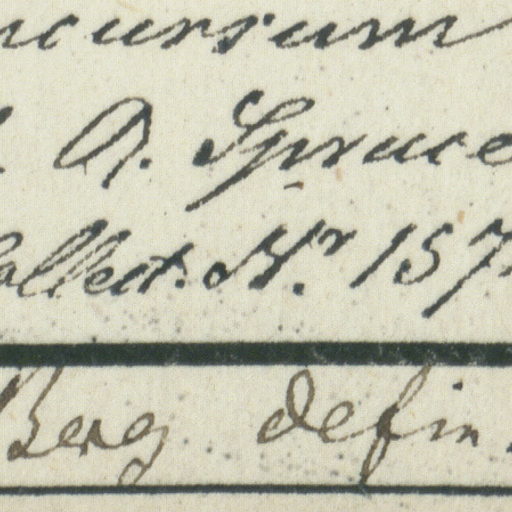 ncursum
. R. Spruce
Collect. Nr. 157
Berg defin.